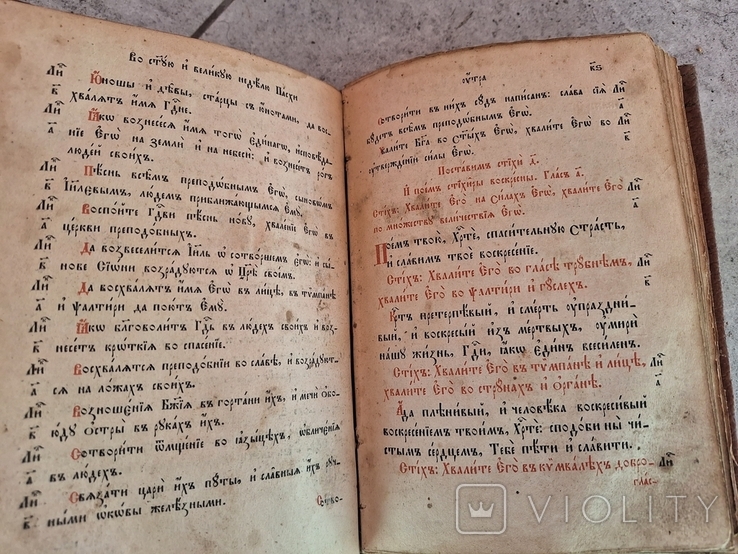 Во ст҃ую и великую неделю Пасхи
Ю҆ноши и҆ дѣвы, старцы съ ю҆нотами, да вос-
хвалятъ и҆мя Гд҇не.
Ꙗ҆кѡ вознесеся и҆мя тогѡ є҆динагѡ, исповѣда-
нїе Є҆гѡ̀ на земли и҆ на небеси: и҆ вознесетъ рогъ
людей своихъ.
Пѣснь всѣмъ преподѡбнымъ Є҆гѡ̀, сыновѡмъ
І҆и҃лєвымъ, людемъ приближающымся Є҆мꙋ̀.
Воспойте Гд҇ви пѣснь новꙋ, хваленїе Є҆гѡ̀ въ
церкви преподобныхъ.
Да возвеселится І҆и҃ль ѡ҆ сотворшемъ є҆го̀: и҆ сы-
нове Сїѡни возрадꙋются ѡ҆ Цр҃ѣ своемъ.
Да восхвалятъ и҆мя Є҆гѡ̀ въ лицѣ, въ тѷмпанѣ
и҆ ѱалтири да поютъ Є҆мꙋ̀.
Ꙗ҆кѡ благоволитъ Гд҇ь въ людехъ своихъ и҆ воз-
несетъ крѡткїя во спасенїе.
Восхвалятся преподобнїи во славѣ, и҆ возрадꙋют-
ся на ложахъ своихъ.
Возношенїя Бж҃їя въ гортани и҆хъ, и҆ мечи ѻ҆бо-
юдꙋ ѻ҆стры въ рꙋкахъ и҆хъ.
Сотворити ѿмщенїе во ꙗ҆зыцѣхъ, ѡ҆бличенїя
въ людехъ.
Связати цари и҆хъ пꙋты, и҆ славныя и҆хъ рꙋч-
ными ѡ҆кѡвы желѣзными.
Сотво-
ᲂу҆тра
к҃ѕ
сотворити въ нихъ сꙋдъ написанъ: слава сїя
бꙋдетъ всѣмъ преподобнымъ Є҆гѡ̀.
Хвалите Бг҃а во ст҃ыхъ Є҆гѡ̀, хвалите Є҆го̀ во
ᲂу҆твержденїи силы Є҆гѡ̀.
Поставимъ стїхи д҃.
И҆ поемъ стїхиры воскресны. Гласъ а҃.
Стїхъ: Хвалите Є҆го̀ на силахъ Є҆гѡ̀, хвалите Є҆го̀
по множествꙋ величествїя Є҆гѡ̀.
Поемъ твою, Хр҇те, спасительнꙋю страсть,
и҆ славимъ твое воскресенїе.
Стїхъ: Хвалите Є҆го̀ во гласѣ трꙋбнѣмъ,
хвалите Є҆го̀ во ѱалтири и҆ гꙋслехъ.
Кр҇тъ претерпѣвый, и҆ смерть ᲂу҆праздни-
вый, и҆ воскресый и҆зъ мертвыхъ, ᲂу҆мири
нашꙋ жизнь, Гд҇и, ꙗ҆кѡ є҆динъ всесиленъ.
Стїхъ: Хвалите Є҆го̀ въ тѷмпанѣ и҆ лицѣ,
хвалите Є҆го̀ во стрꙋнахъ и҆ ѻ҆рганѣ.
А҆да плѣнивый, и҆ человѣка воскресивый
воскресенїемъ твоимъ, Хр҇те: сподоби ны чи-
стымъ сердцемъ, Тебе пѣти и҆ славити.
Стїхъ: Хвалите Є҆го̀ въ кѷмвалѣхъ добро-
глас-
VIOLITY